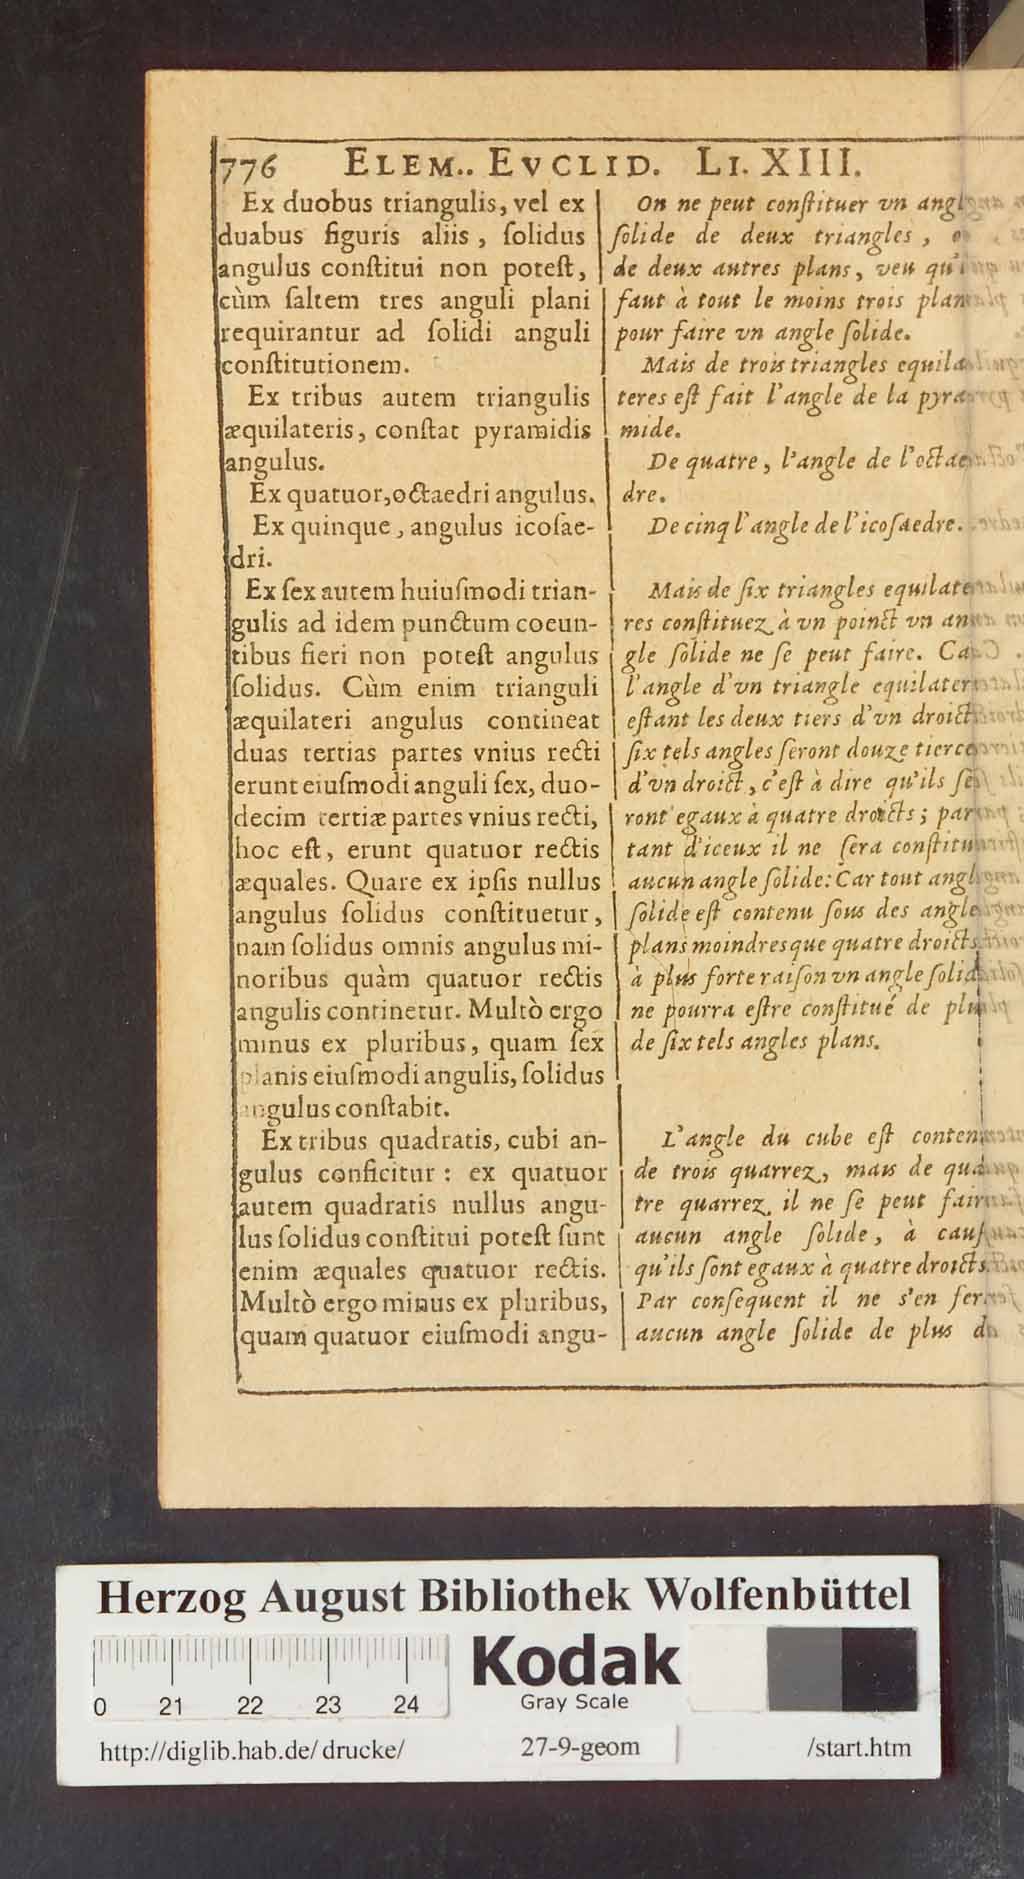 776 ELEM.. EVCLID. LI. XIII.
Ex duobus triangulis, vel ex
duabus figuris aliis, ſolidus
angulus conſtitui non poteſt,
cùm ſaltem tres anguli plani
requirantur ad ſolidi anguli
conſtitutionem.
Ex tribus autem triangulis
æquilateris, conſtat pyramidis
angulus.
Ex quatuor, octaedri angulus.
Ex quinque, angulus icoſae-
dri.
Ex ſex autem huiuſmodi trian-
gulis ad idem punctum coeun-
tibus fieri non poteſt angulus
ſolidus. Cùm enim trianguli
æquilateri angulus contineat
duas tertias partes vnius recti
erunt eiuſmodi anguli ſex, duo-
decim tertiæ partes vnius recti,
hoc eſt, erunt quatuor rectis
æquales. Quare ex ipſis nullus
angulus ſolidus conſtituetur,
nam ſolidus omnis angulus mi-
noribus quàm quatuor rectis
angulis continetur. Multò ergo
minus ex pluribus, quam ſex
planis eiuſmodi angulis, ſolidus
angulus conſtabit.
Ex tribus quadratis, cubi an-
gulus conficitur : ex quatuor
autem quadratis nullus angu-
lus ſolidus conſtitui poteſt ſunt
enim æquales quatuor rectis.
Multò ergo minus ex pluribus,
quam quatuor eiuſmodi angu-
On ne peut conſtituer vn angl
ſolide de deux triangles, o
de deux autres plans, veu qu'i
faut à tout le moins trois plan
pour faire vn angle ſolide.
Mais de trois triangles equila
teres eſt fait l'angle de la pyra
mide.
De quatre, l'angle de l'octae
dre.
De cinq l'angle de l'icoſaedre.
Mais de ſix triangles equilate
res conſtituez à vn poinct vn an
gle ſolide ne ſe peut faire. Ca
l'angle d'vn triangle equilater
eſtant les deux tiers d'vn droict
ſix tels angles ſeront douze tierce
d'vn droict, c'eſt à dire qu'ils ſe
ront egaux à quatre droicts; par
tant d'iceux il ne ſera conſtitu
aucun angle ſolide: Car tout angl
ſolide eſt contenu ſous des angle
plans moindres que quatre droicts
à plus forte raiſon vn angle ſolid
ne pourra eſtre conſtitué de plu
de ſix tels angles plans.
L'angle du cube eſt conten
de trois quarrez, mais de qua
tre quarrez il ne ſe peut fair
aucun angle ſolide, à cauſ
qu'ils ſont egaux à quatre droicts.
Par conſequent il ne s'en fer
aucun angle ſolide de plus d
Herzog August Bibliothek Wolfenbüttel
0 21 22 23 24
Kodak
Gray Scale
http://diglib.hab.de/drucke/ 27-9-geom /start.htm